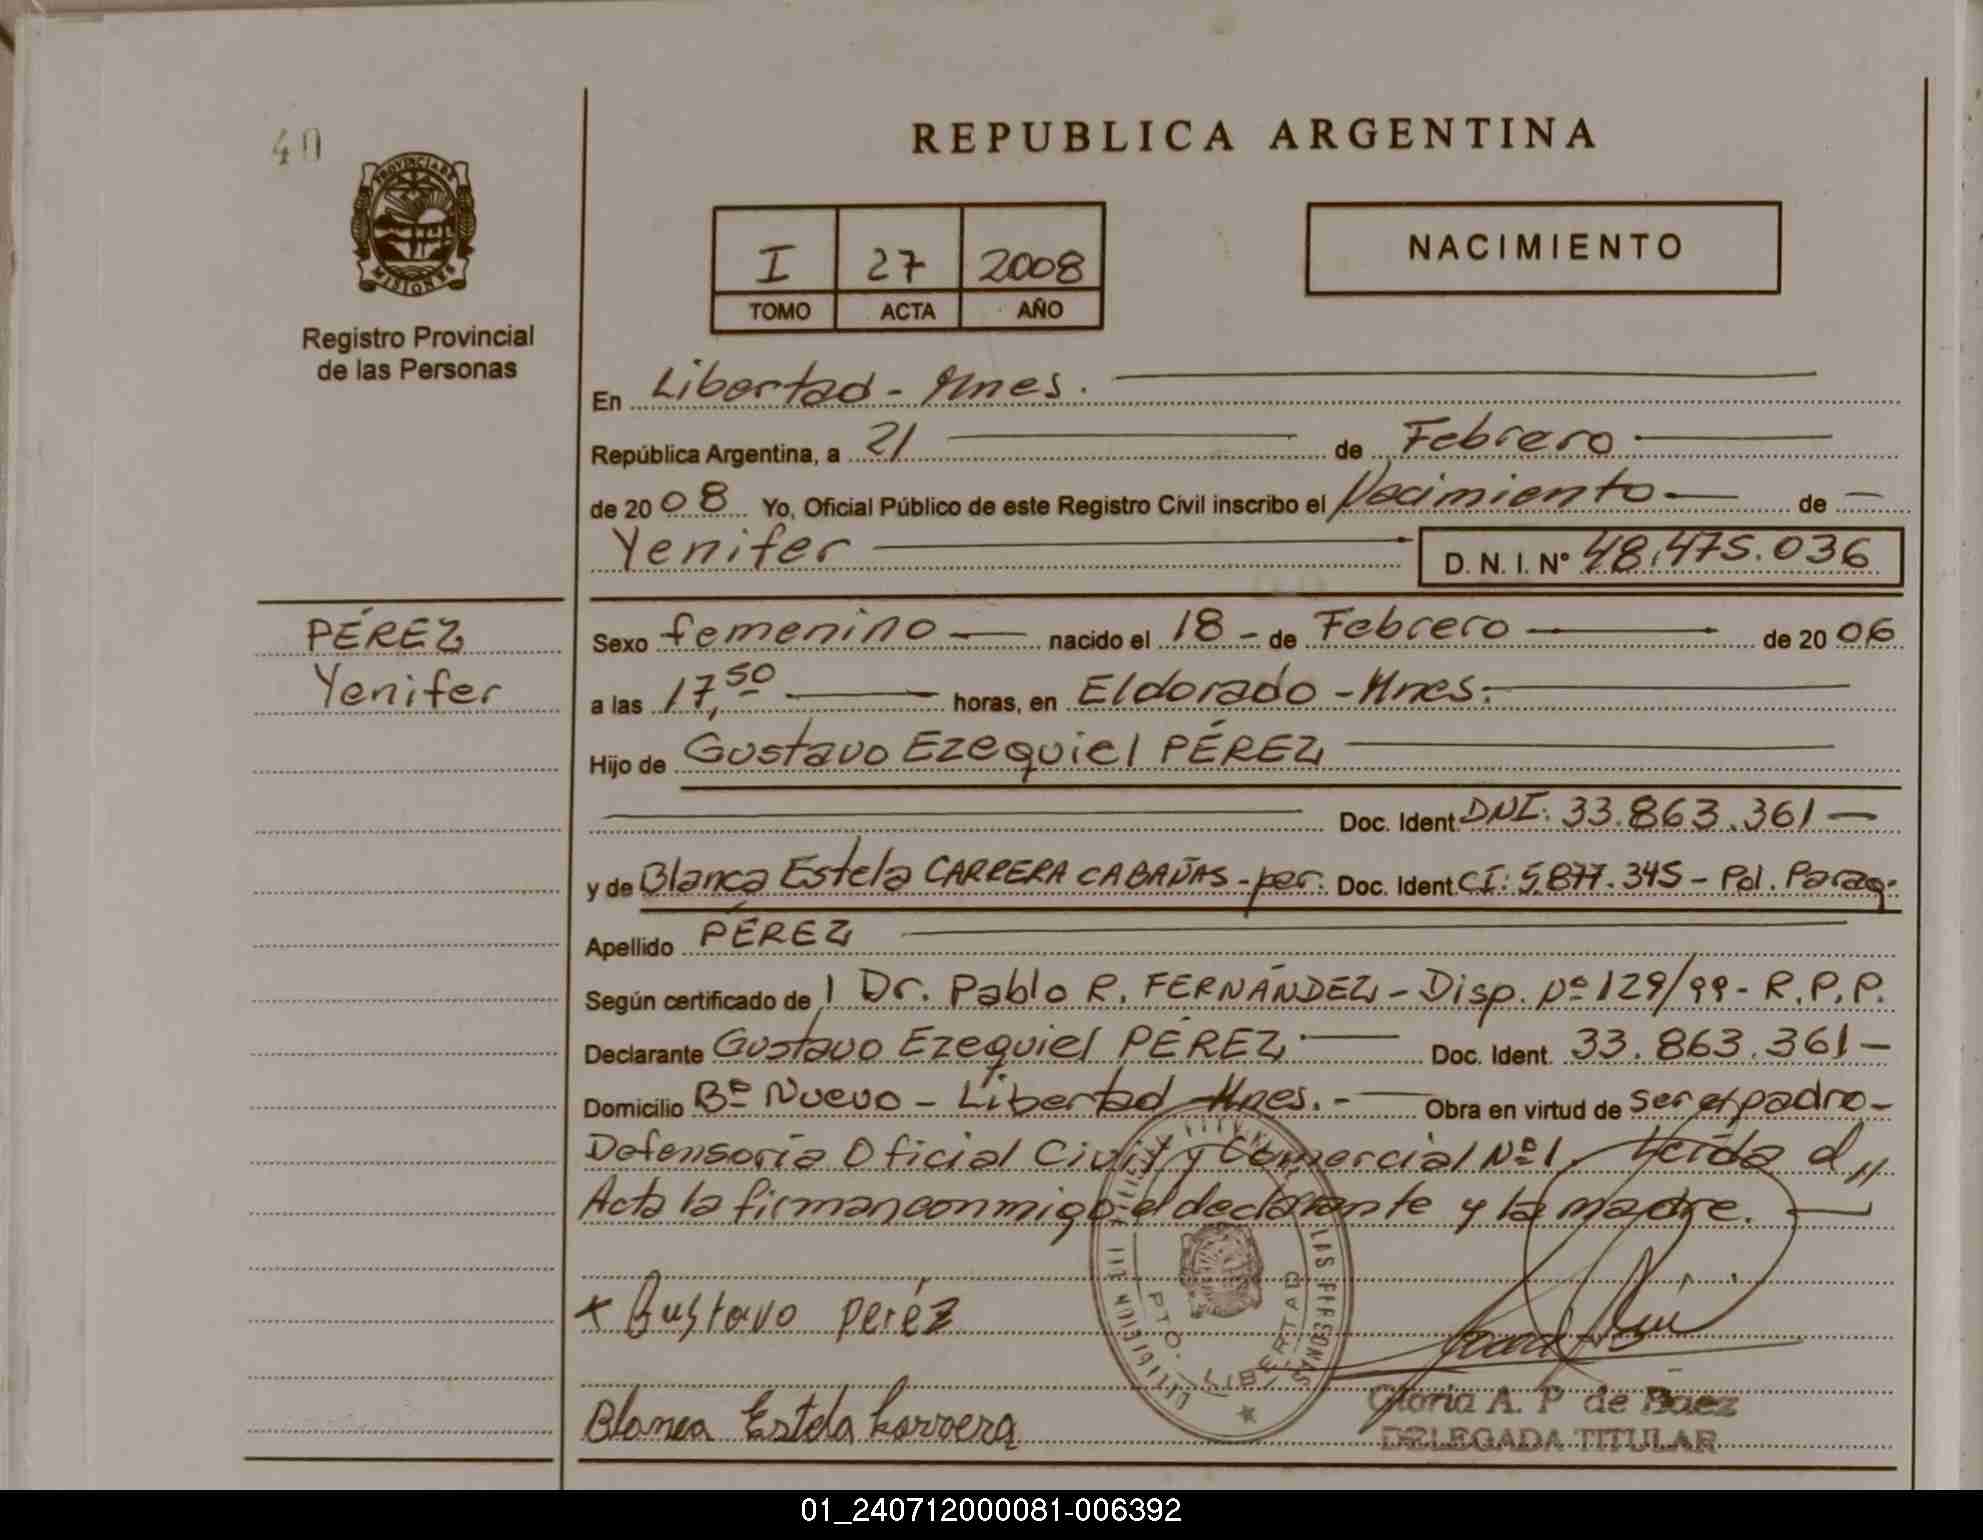 40
PROVINCIA DE
MISIONES
Registro Provincial
de las Personas
REPUBLICA ARGENTINA
I 27 2008
TOMO ACTA AÑO
NACIMIENTO
En Libertad - Mnes.
República Argentina, a 21 de Febrero
de 2008 Yo, Oficial Público de este Registro Civil inscribo el Nacimiento de
Yenifer D. N. I. Nº 48.475.036
PÉREZ
Yenifer
Sexo femenino nacido el 18 - de Febrero de 2006
a las 17,50 horas, en Eldorado - Mnes.
Hijo de Gustavo Ezequiel PÉREZ
Doc. Ident. DNI: 33.863.361 —
y de Blanca Estela CARRERA CABAÑAS - per. Doc. Ident. CI: 5.877.345 - Pol. Parag.
Apellido PÉREZ
Según certificado de 1 Dr. Pablo R. FERNÁNDEZ - Disp. Nº 129/99 - R.P.P.
Declarante Gustavo Ezequiel PÉREZ Doc. Ident. 33.863.361 —
Domicilio Bº Nuevo - Libertad - Mnes. - Obra en virtud de ser el padre -
Defensoría Oficial Civil y Comercial Nº 1. Leída el
Acta la firman conmigo el declarante y la madre.
x Gustavo peréz
PTO. LIBERTAD
LAS PERSONAS
Blanca Estela Carrera
Gloria A. P. de Baez
DELEGADA TITULAR
01_240712000081-006392